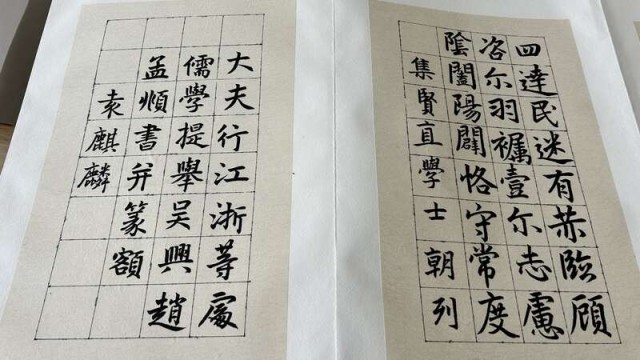 四達民迷有赫臨顧
咨尔羽襡壹尔志慮
陰闔陽闢恪守常度
集賢直學士朝列
大夫行江浙等處
儒學提舉吳興趙
孟頫書并篆額
袁麒麟